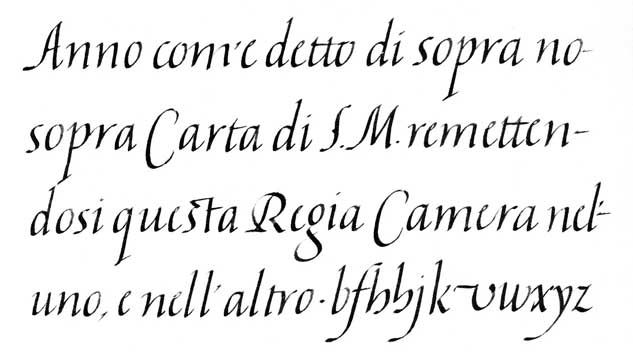 Anno com'è detto di sopra no-
sopra Carta di S.M. remetten-
dosi questa Regia Camera nel-
uno, e nell'altro. bfhhjkvwxyz